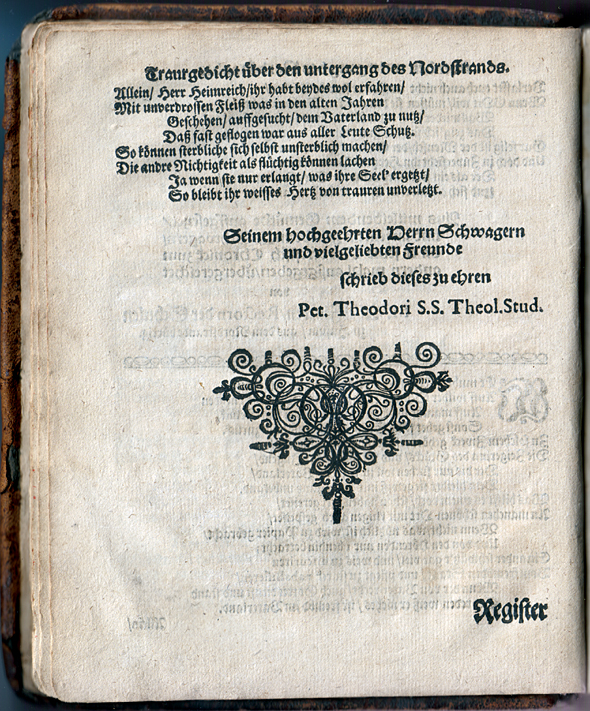 Traurgedicht über den untergang des Nordstrands.
Allein/ Herr Heimreich/ihr habt beydes wol erfahren/
Mit unverdrossen Fleiß was in den alten Jahren
Geschehen/ auffgesucht/ dem Vaterland zu nutz/
Daß fast geflogen war aus aller Leute Schutz.
So können sterbliche sich selbst unsterblich machen/
Die andre Nichtigkeit als flüchtig können lachen
Ja wenn sie nur erlangt/ was ihre Seel' ergetzt/
So bleibt ihr weisses Hertz von trauren unverletzt.
Seinem hochgeehrten Herrn Schwagern
und vielgeliebten Freunde
schrieb dieses zu ehren
Pet. Theodori S.S. Theol.Stud.
Register